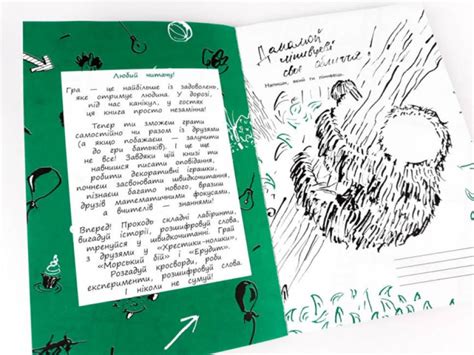 Любий читачу!
Гра — це найбільше із задоволень,
яке отримує людина. У дорозі,
під час канікул, у гостях
ця книга просто незамінна!
Тепер ти зможеш грати
самостійно чи разом із друзями
(а якщо побажаєш — залучити
до гри батьків). І це ще
не все! Завдяки цій книзі ти
навчишся писати оповідання,
робити декоративні іграшки,
почнеш засвоювати швидкочитання,
пізнаєш багато нового, вразиш
друзів математичними фокусами,
а вчителів — знаннями!
Вперед! Проходь складні лабіринти,
вигадуй історії, розшифровуй слова,
тренуйся у швидкочитанні. Грай
з друзями у «Хрестики-нолики»,
«Морський бій» і «Ерудит».
Розгадуй кросворди, роби
експерименти, розшифровуй слова.
І ніколи не сумуй!
Домалюй
своє обличчя!
Напиши, який ти